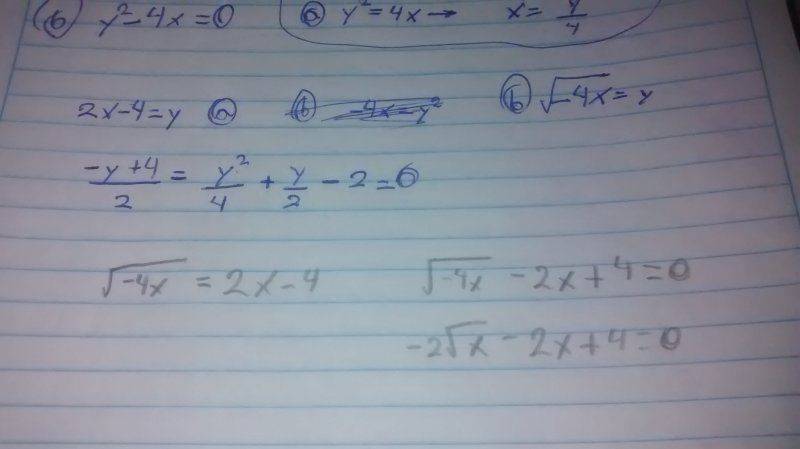 (b) y²-4x=0 (a) y²=4x→ x= y/4
2x-4=y (a) (b) -4x=y² (b) √-4x=y
-y+4/2 = y²/4 + y/2 - 2=0
√-4x = 2x-4 √-4x -2x+4=0
-2√x -2x+4=0